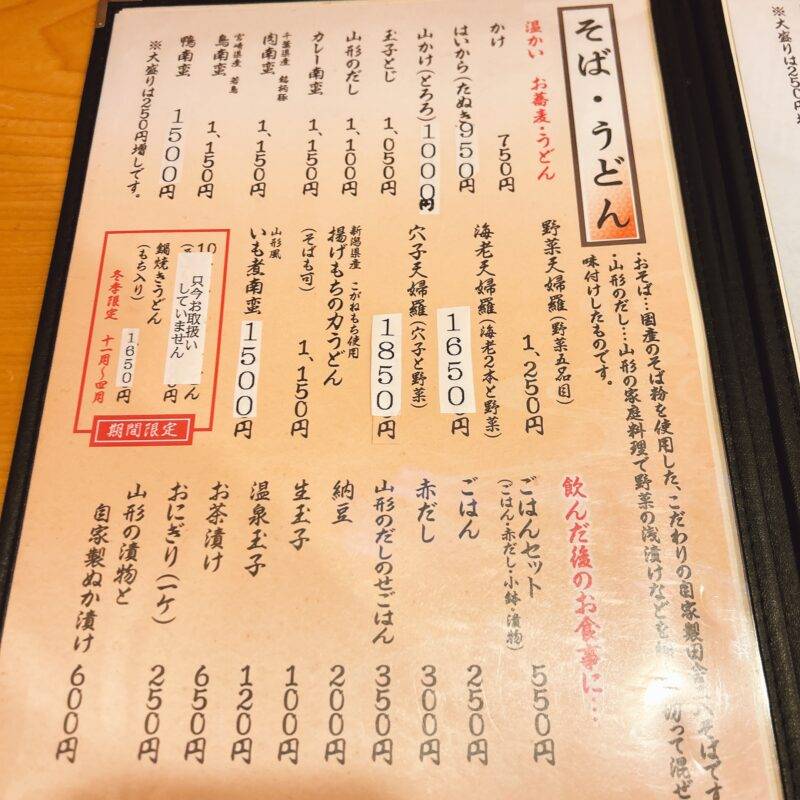 そば・うどん
・おそば…国産のそば粉を使用した、こだわりの自家製田舎
そばです
・山形のだし…山形の家庭料理で野菜の浅漬けなどを
切って混ぜ
味付けしたものです。
温かい お蕎麦・うどん
かけ 750円
はいから(たぬき) 950円
山かけ(とろろ) 1000円
玉子とじ 1,050円
山形のだし 1,100円
カレー南蛮 1,150円
千葉県産 銘柄豚
肉南蛮 1,150円
宮崎県産 若鳥
鳥南蛮 1,150円
鴨南蛮 1500円
※大盛りは250円増しです。
野菜天婦羅(野菜五品目) 1,250円
海老天婦羅(海老2本と野菜) 1650円
穴子天婦羅(穴子と野菜) 1850円
新潟県産 こがねもち使用
揚げもちの力うどん
(そばも可) 1,150円
山形風
いも煮南蛮 1500円
只今お取扱い
していません
鍋焼きうどん
(もち入り) 1650円
冬季限定 十一月〜四月
期間限定
飲んだ後のお食事に…
ごはんセット
(ごはん・赤だし・小鉢・漬物) 550円
ごはん 250円
赤だし 300円
山形のだしのせごはん 350円
納豆 200円
生玉子 100円
温泉玉子 120円
お茶漬け 650円
おにぎり(一ケ) 250円
山形の漬物と
自家製ぬか漬け 600円
※大盛りは250円増